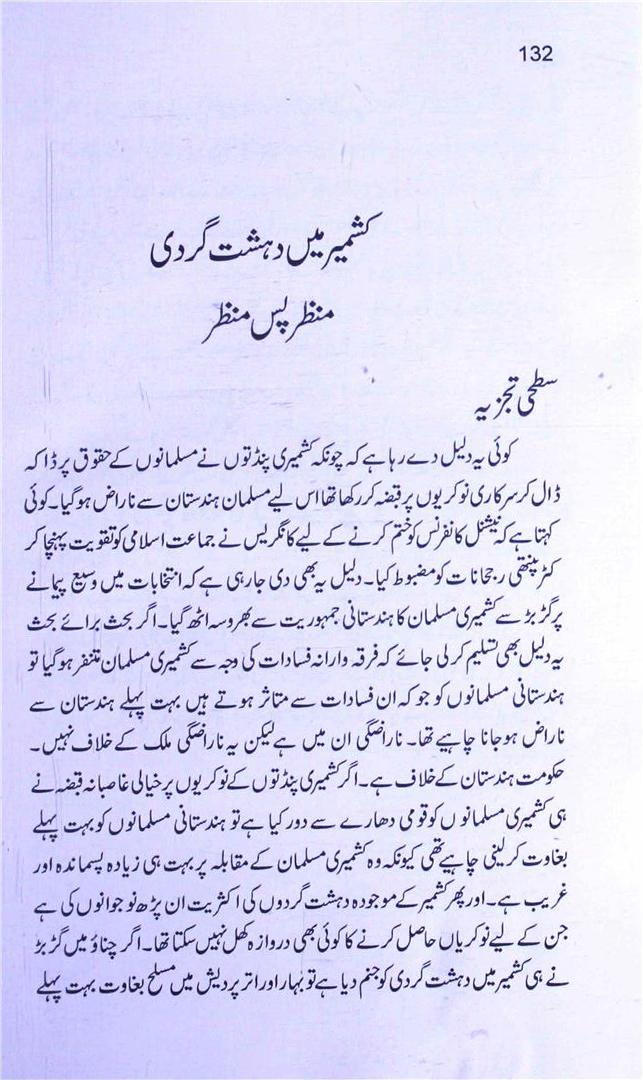 132
کشمیر میں دہشت گردی
منظر پس منظر
سطحی تجزیہ
کوئی یہ دلیل دے رہا ہے کہ چونکہ کشمیری پنڈتوں نے مسلمانوں کے حقوق پر ڈاکہ
ڈال کر سرکاری نوکریوں پر قبضہ کر رکھا تھا اس لیے مسلمان ہندستان سے ناراض ہو گیا۔ کوئی
کہتا ہے کہ نیشنل کانفرنس کو ختم کرنے کے لیے کانگریس نے جماعت اسلامی کو تقویت پہنچا کر
کٹر پنتھی رجحانات کو مضبوط کیا۔ دلیل یہ بھی دی جا رہی ہے کہ انتخابات میں وسیع پیمانے
پر گڑبڑ سے کشمیری مسلمان کا ہندستانی جمہوریت سے بھروسہ اٹھ گیا۔ اگر بحث برائے بحث
یہ دلیل بھی تسلیم کر لی جائے کہ فرقہ وارانہ فسادات کی وجہ سے کشمیری مسلمان متنفر ہو گیا تو
ہندستانی مسلمانوں کو جو کہ ان فسادات سے متاثر ہوتے ہیں بہت پہلے ہندستان سے
ناراض ہو جانا چاہیے تھا۔ ناراضگی ان میں ہے لیکن یہ ناراضگی ملک کے خلاف نہیں۔
حکومت ہندستان کے خلاف ہے۔ اگر کشمیری پنڈتوں کے نوکریوں پر خیالی غاصبانہ قبضہ نے
ہی کشمیری مسلمانوں کو قومی دھارے سے دور کیا ہے تو ہندستانی مسلمانوں کو بہت پہلے
بغاوت کر لینی چاہیے تھی کیونکہ وہ کشمیری مسلمان کے مقابلہ پر بہت ہی زیادہ پسماندہ اور
غریب ہے۔ اور پھر کشمیر کے موجودہ دہشت گردوں کی اکثریت ان پڑھ نوجوانوں کی ہے
جن کے لیے نوکریاں حاصل کرنے کا کوئی بھی دروازہ کھل نہیں سکتا تھا۔ اگر چناؤ میں گڑبڑ
نے ہی کشمیر میں دہشت گردی کو جنم دیا ہے تو بہار اور اتر پردیش میں مسلح بغاوت بہت پہلے